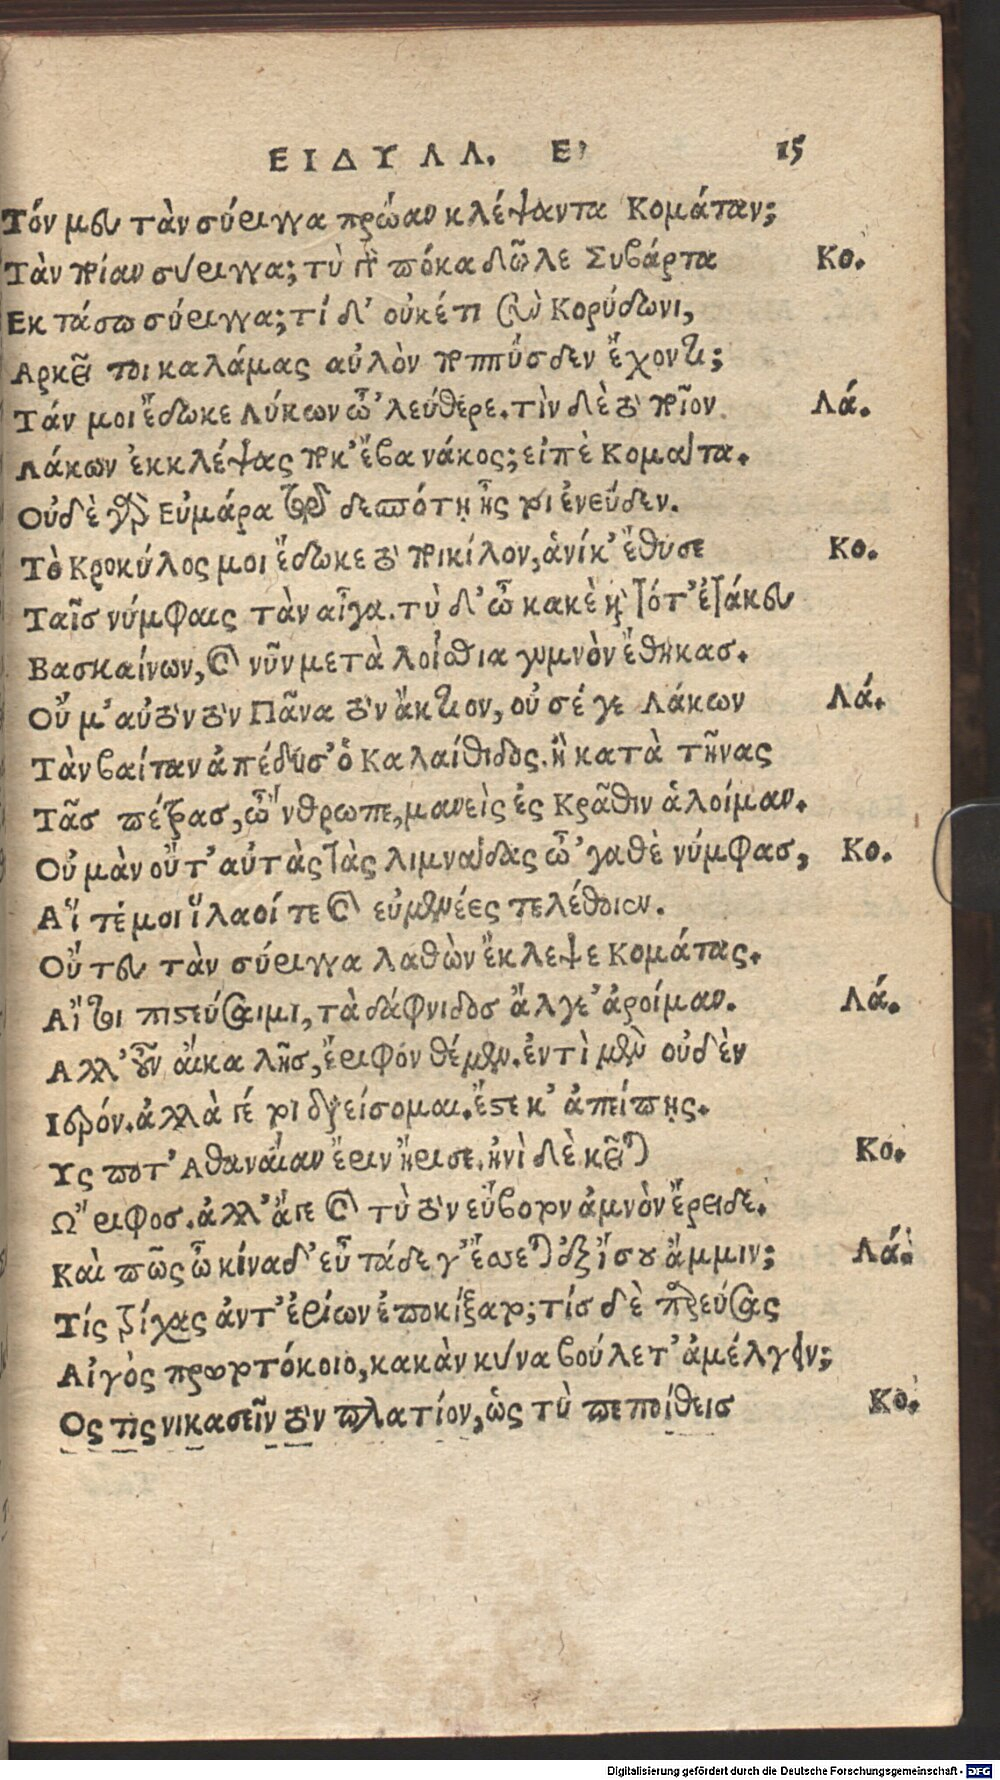 ΕΙΔΥΛΛ. Ε' 15
Τόν μευ τὰν σύριγγα πρώαν κλέψαντα Κομάταν;
Τὰν ποίαν σύριγγα; τὺ γάρ πόκα δῶλε Συβάρτα Κο.
Εκτάσω σύριγγα; τί δ' οὐκέτι σὺ Κορύδωνι,
Αρκεῖ τοι καλάμας αὐλὸν ποππύσδεν ἔχοντι;
Τάν μοι ἔδωκε Λύκων ὦ 'λεύθερε. τὶν δὲ τὸ ποῖον Λά.
Λάκων ἐκκλέψας ποκ' ἔβα νάκος; εἰπὲ Κομάτα.
Οὐδὲ γὰρ Εὐμάρα τῷ δεσπότῃ ἦς τοι ἐνεύδεν.
Τὸ Κροκύλος μοι ἔδωκε τὸ ποικίλον, ἁνίκ' ἔθυσε Κο.
Ταῖς νύμφαις τὰν αἶγα. τὺ δ' ὦ κακὲ καὶ τότ' ἐτάκευ
Βασκαίνων, καὶ νῦν μετὰ λοίσθια γυμνὸν ἔθηκας.
Οὔ μ' αὐτὸν τὸν Πᾶνα τὸν ἄκτιον, οὐ σέ γε Λάκων Λά.
Τὰν βαίταν ἀπέδυσ' ὁ Καλαίθιδος. ἢ κατὰ τήνας
Τᾶς πέτρας, ὦ 'νθρωπε, μανεὶς ἐς Κρᾶθιν ἁλοίμαν.
Οὐ μὰν οὔτ' αὐτὰς τὰς λιμνάδας ὦ 'γαθὲ νύμφας, Κο.
Αἵ τέ μοι ἵλαοί τε καὶ εὐμενέες τελέθοιεν.
Οὔ τευ τὰν σύριγγα λαθὼν ἔκλεψε Κομάτας.
Αἴ τοι πιστεύσαιμι, τὰ δάφνιδος ἄλγε' ἀροίμαν. Λά.
Αλλ' οὖν αἴκα λῇς, ἔριφον θέμεν. ἐντὶ μὲν οὐδὲν
Ιερόν. ἀλλὰ γέ τοι διαείσομαι. ἔστε κ' ἀπείπῃς.
Υς ποτ' Αθαναίαν ἔριν ἤρισε. ἠνὶ δὲ κεῖται Κο.
Ω"ριφος. ἀλλ' ἄγε καὶ τὺ τὸν εὔβοτον ἀμνὸν ἔρειδε.
Καὶ πῶς ὦ κίναδ' εὖ τάδε γ' ἔσσεται ἐξ ἴσου ἄμμιν; Λά.
Τίς τρίχας ἀντ' ἐρίων ἐποκίξατο; τίς δὲ παρεύσας
Αἰγὸς πρωτοτόκοιο, κακὰν κύνα βούλετ' ἀμέλγειν;
Ος τις νικασεῖν τὸν πλατίον, ὡς τὺ πεποίθεις Κο.
Digitalisierung gefördert durch die Deutsche Forschungsgemeinschaft - DFG